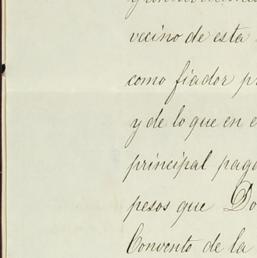 vecino de esta
como fiador pr
y de lo que en e
principal paga
pesos que Do
Convento de la